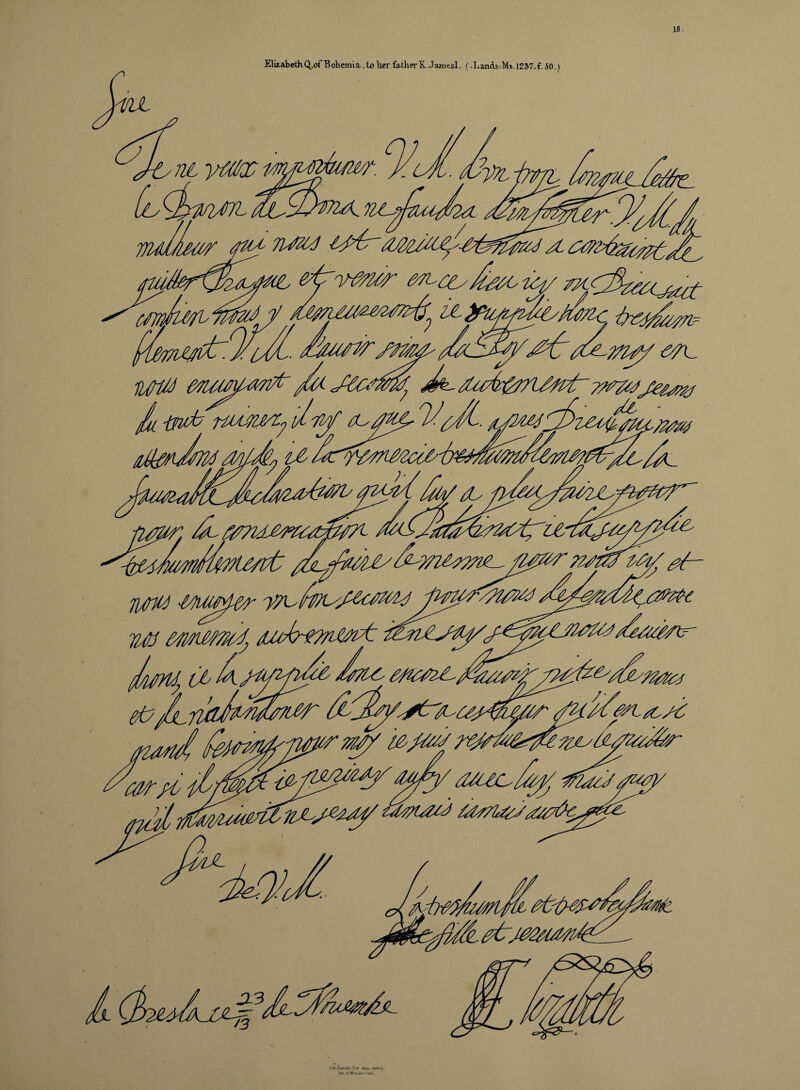 18.
Elizabeth Q. of Bohemia, to her father K. James I. (-Lands: Ms. 1257. f. 50.)
Sire
Je ne veux importuner V. M. d'vn trop longue lettre
le Baron de Dona ne faudra d'informer V. M. du
malheur qui nous est arriué, et nous a contraint de
quitter Prague, et venir en ce lieu icy ou Dieu sait
combien nous y demeurerons, ie supplie donc treshum=
blement V. M. d'auoir soing du Roy et de moy en
nous enuoyant du secours, autrement nous serons
du tout ruinez, il n'y a que V. M. apres Dieu de qui nous
attendons ayde, ie la remercie treshumblement de la
fauorable declaration qu'il luy a pleu faire pour
pour la conseruation du Palatinat, ie la supplie
treshumblement de faire le mesme pour nous icy, et
nous enuoyer vn bon secours pour nous defendre contre
nos ennemis, autrement ie ne say se que nous deuien=
drons, ie la supplie donc encore d'auoir pitie de nous
et de n'abandonner le Roy a ceste heur qu'il en a si
grand besoing, pour moy ie suis resolue de ne le quitter
car si il perit ie periray aussy auec luy, mais quoy
qu'il m'arriue ie ne seray iamais iamais autre que
Sire
De V. M.
La treshumble et tresobeyssante
fille et seruante
Elizabeth
de Breslau ce 23/13 de Nouembre